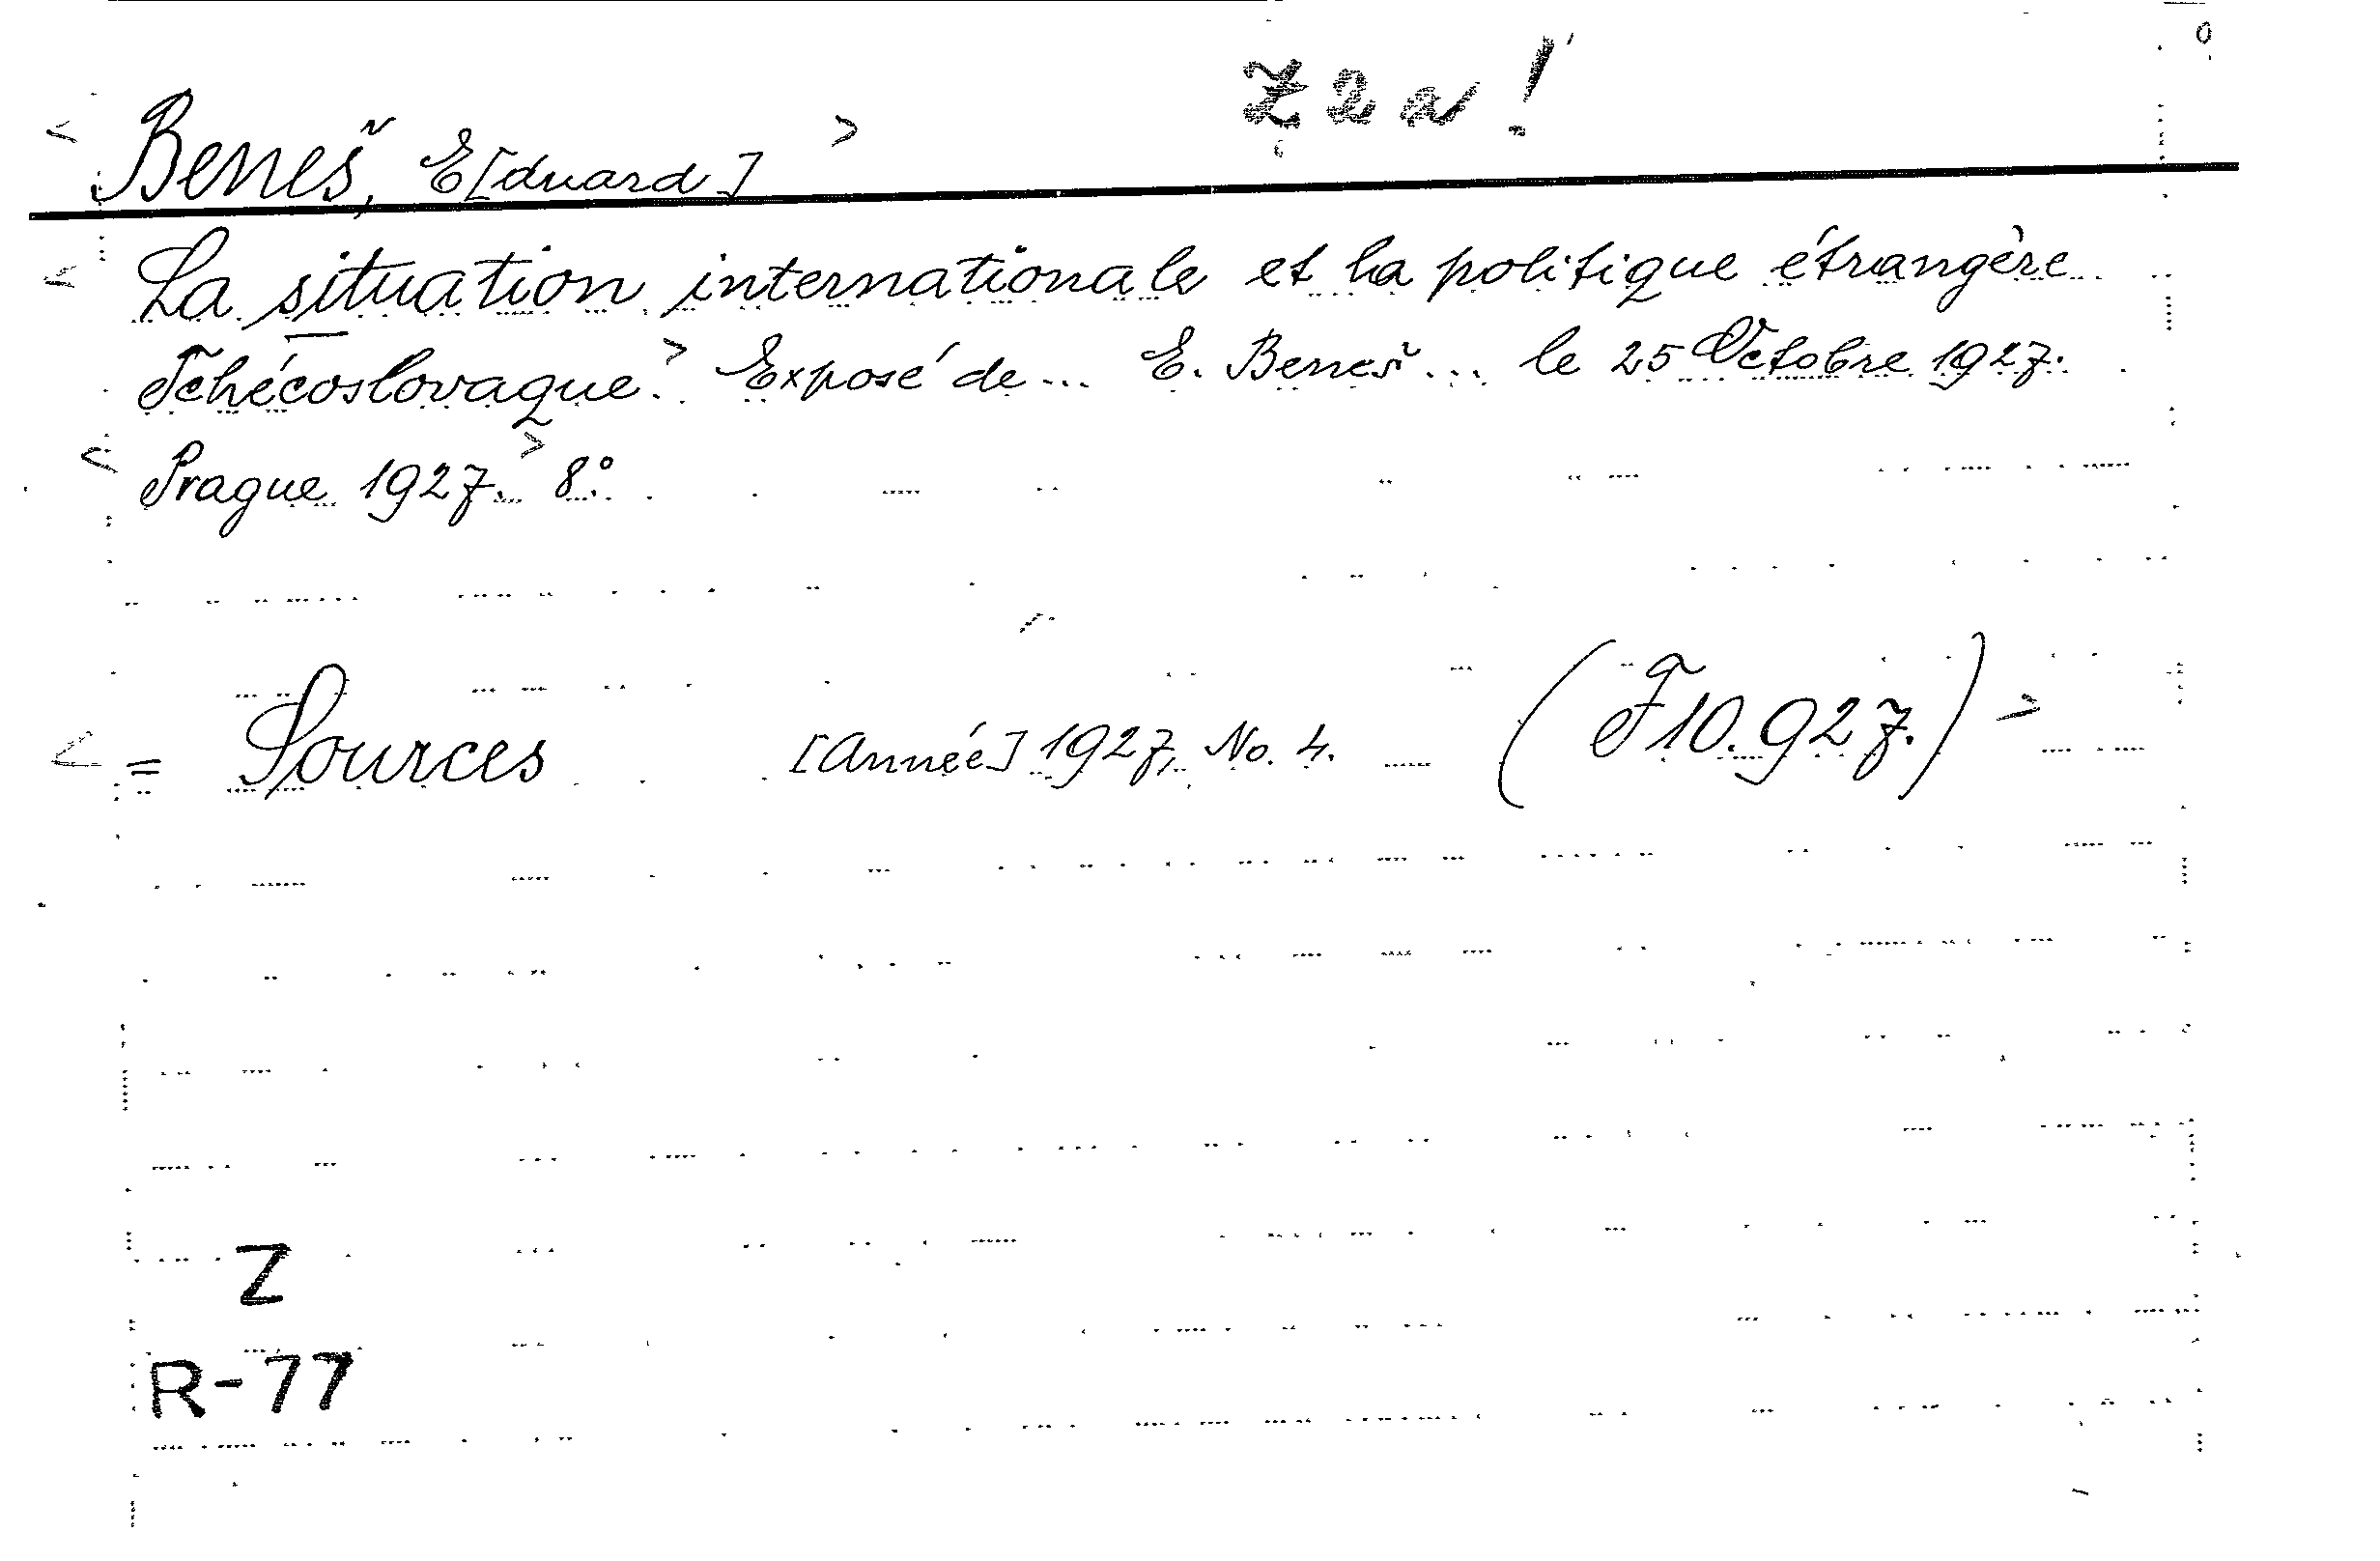 Z2a!
< Beneš, E[duard] >
< La situation internationale et la politique étrangère
Tchécoslovaque.> Exposé de... E. Beneš... le 25 Octobre 1927.
< Prague 1927.> 8°.
< = Sources [Année] 1927, No. 4. (F10.927.) >
Z
R-77